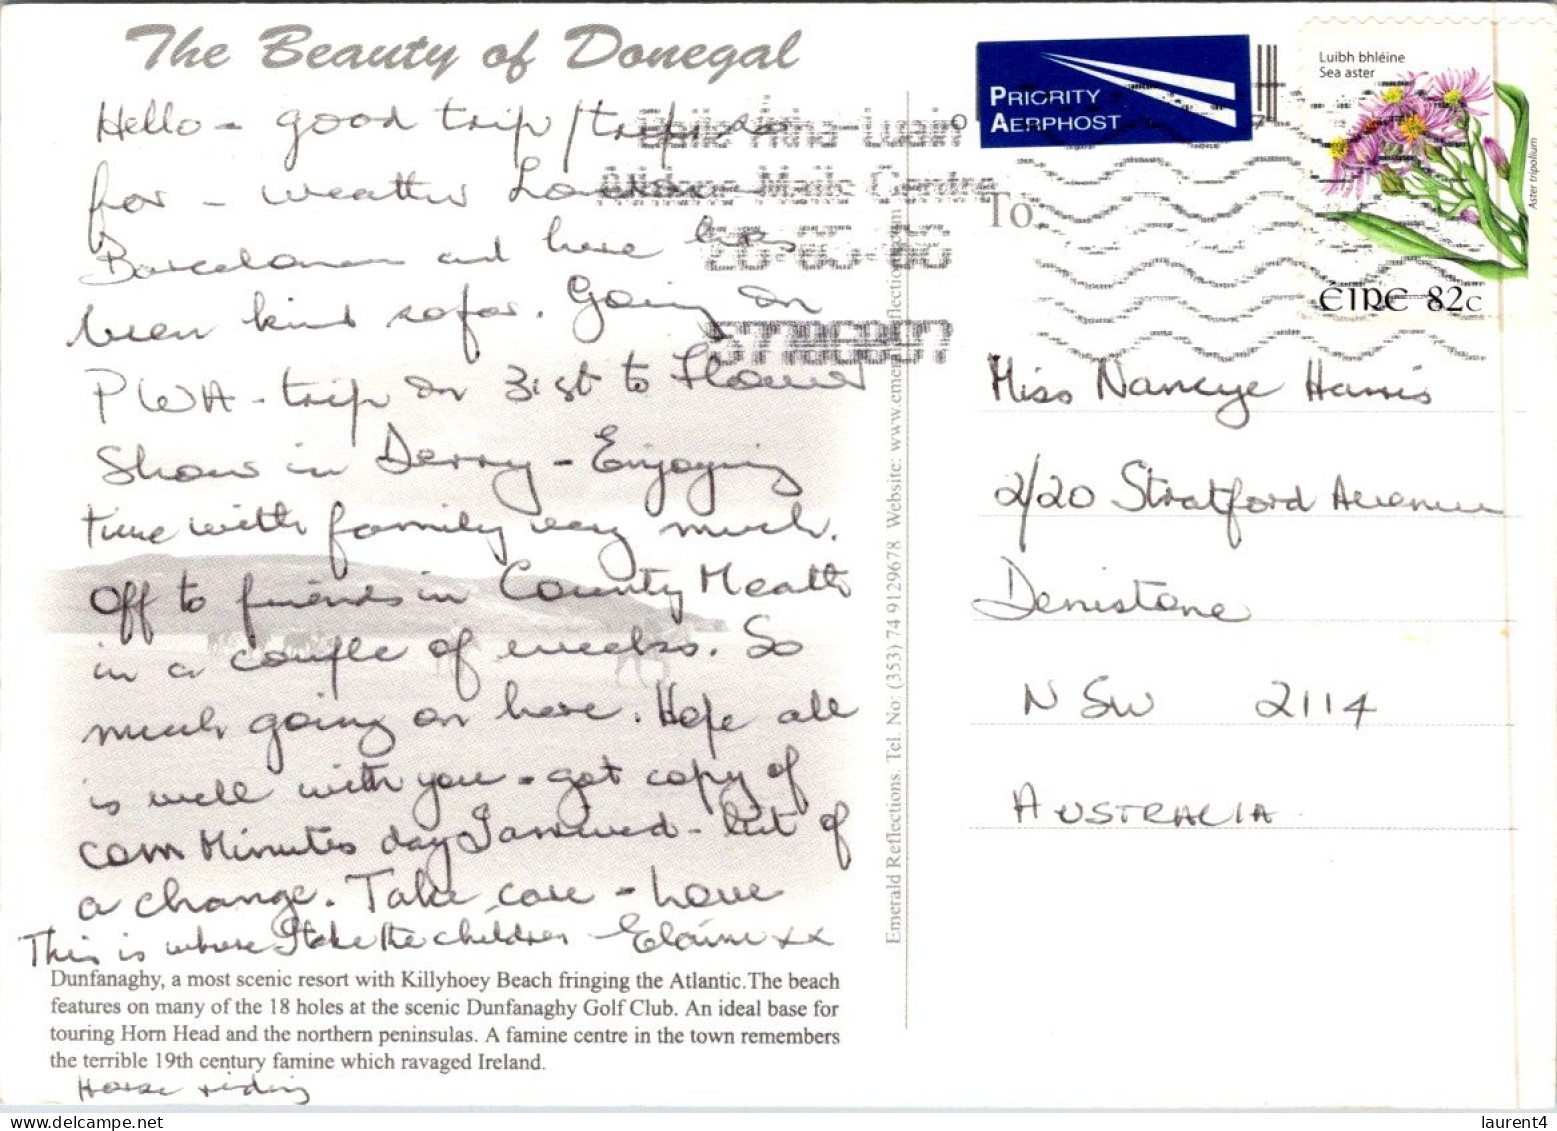 The Beauty of Donegal
Hello - good trip/trips so
far - weather London
Barcelona and here has
been kind so far. Going on
PWA - trip on 31st to Flower
Show in Derry - Enjoying
time with family very much.
Off to friends in County Meath
in a couple of weeks. So
much going on here. Hope all
is well with you - got copy of
com Minutes day I arrived - bit of
a change. Take care - love
This is where I take the children Elaine xx
Dunfanaghy, a most scenic resort with Killyhoey Beach fringing the Atlantic. The beach
features on many of the 18 holes at the scenic Dunfanaghy Golf Club. An ideal base for
touring Horn Head and the northern peninsulas. A famine centre in the town remembers
the terrible 19th century famine which ravaged Ireland.
Horse riding
Emerald Reflections. Tel. No: (353) 74 9129678 Website: www.emeraldreflections.com
PRIORITY
AERPHOST
Baile Átha Luain
Athlone Mails Centre
Luibh bhléine
Sea aster
Aster tripolium
ÉIRE 82c
To:
Miss Nancye Harris
2/20 Stratford Avenue
Denistone
NSW 2114
AUSTRALIA
delcampe.net
laurent4